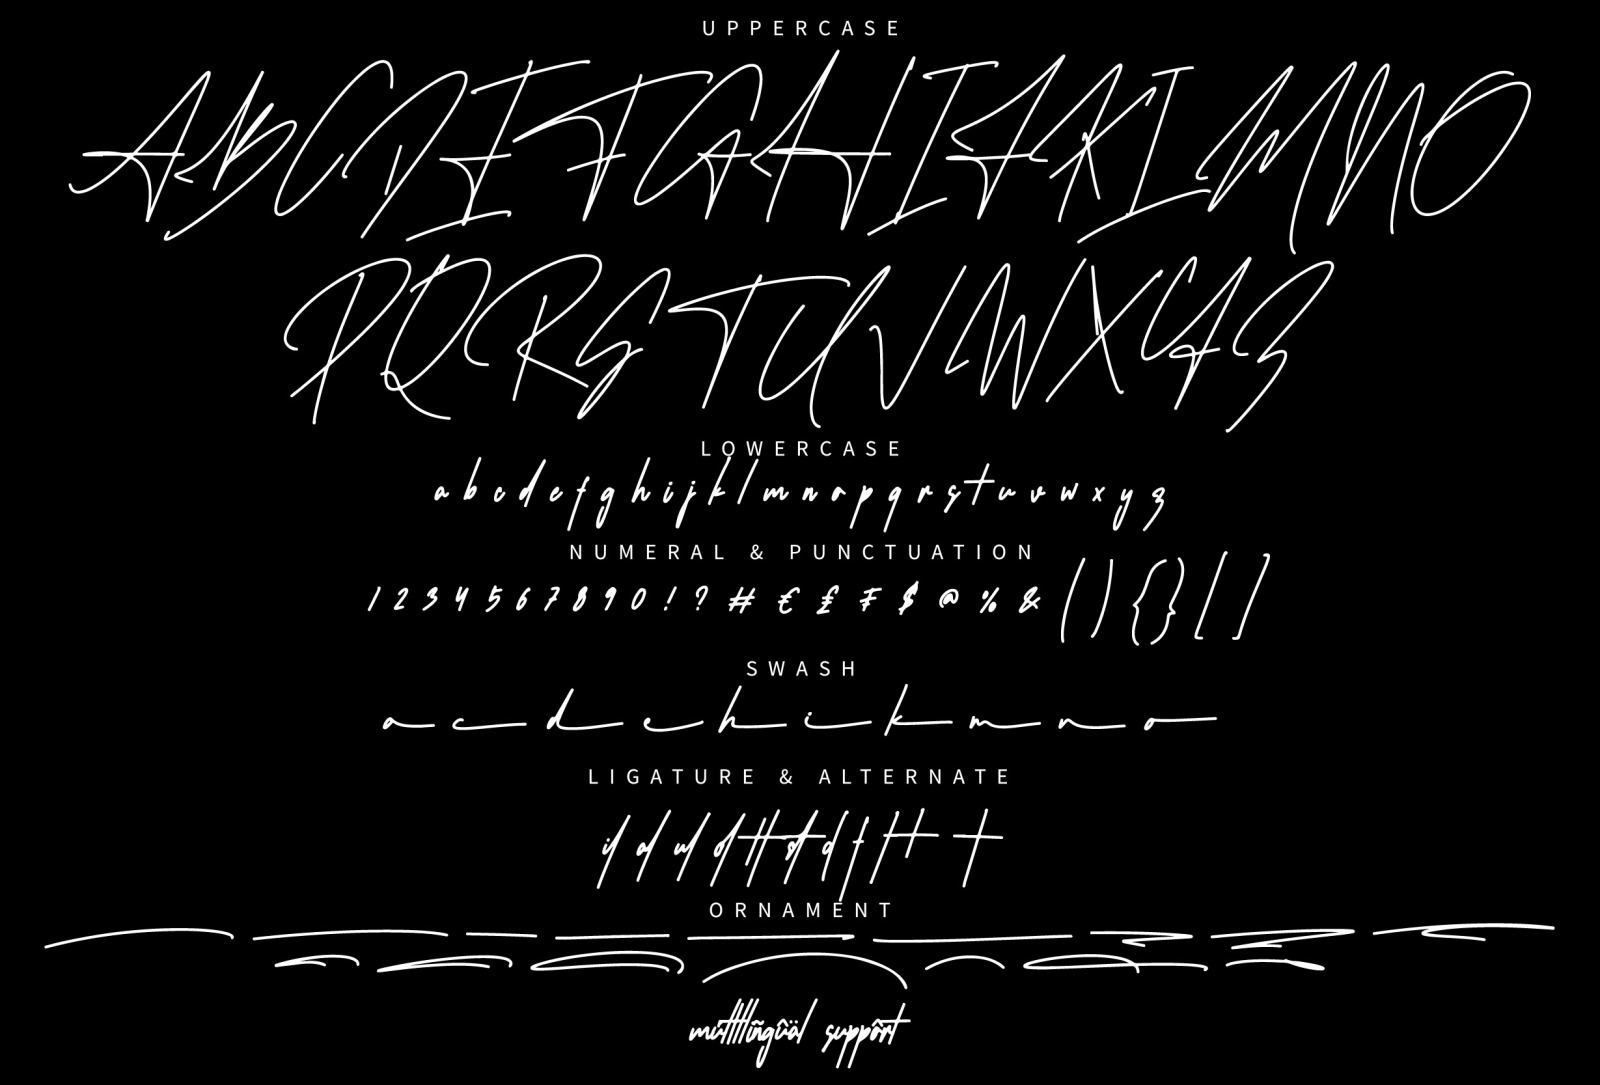 UPPERCASE
ABCDEFGHIJKLMNO
PQRSTUVWXYZ
LOWERCASE
a b c d e f g h i j k l m n o p q r s t u v w x y z
NUMERAL & PUNCTUATION
1 2 3 4 5 6 7 8 9 0 ! ? # € £ ₣ $ @ % & ( ) { } [ ]
SWASH
a c d e h i k m n o
LIGATURE & ALTERNATE
ORNAMENT
support